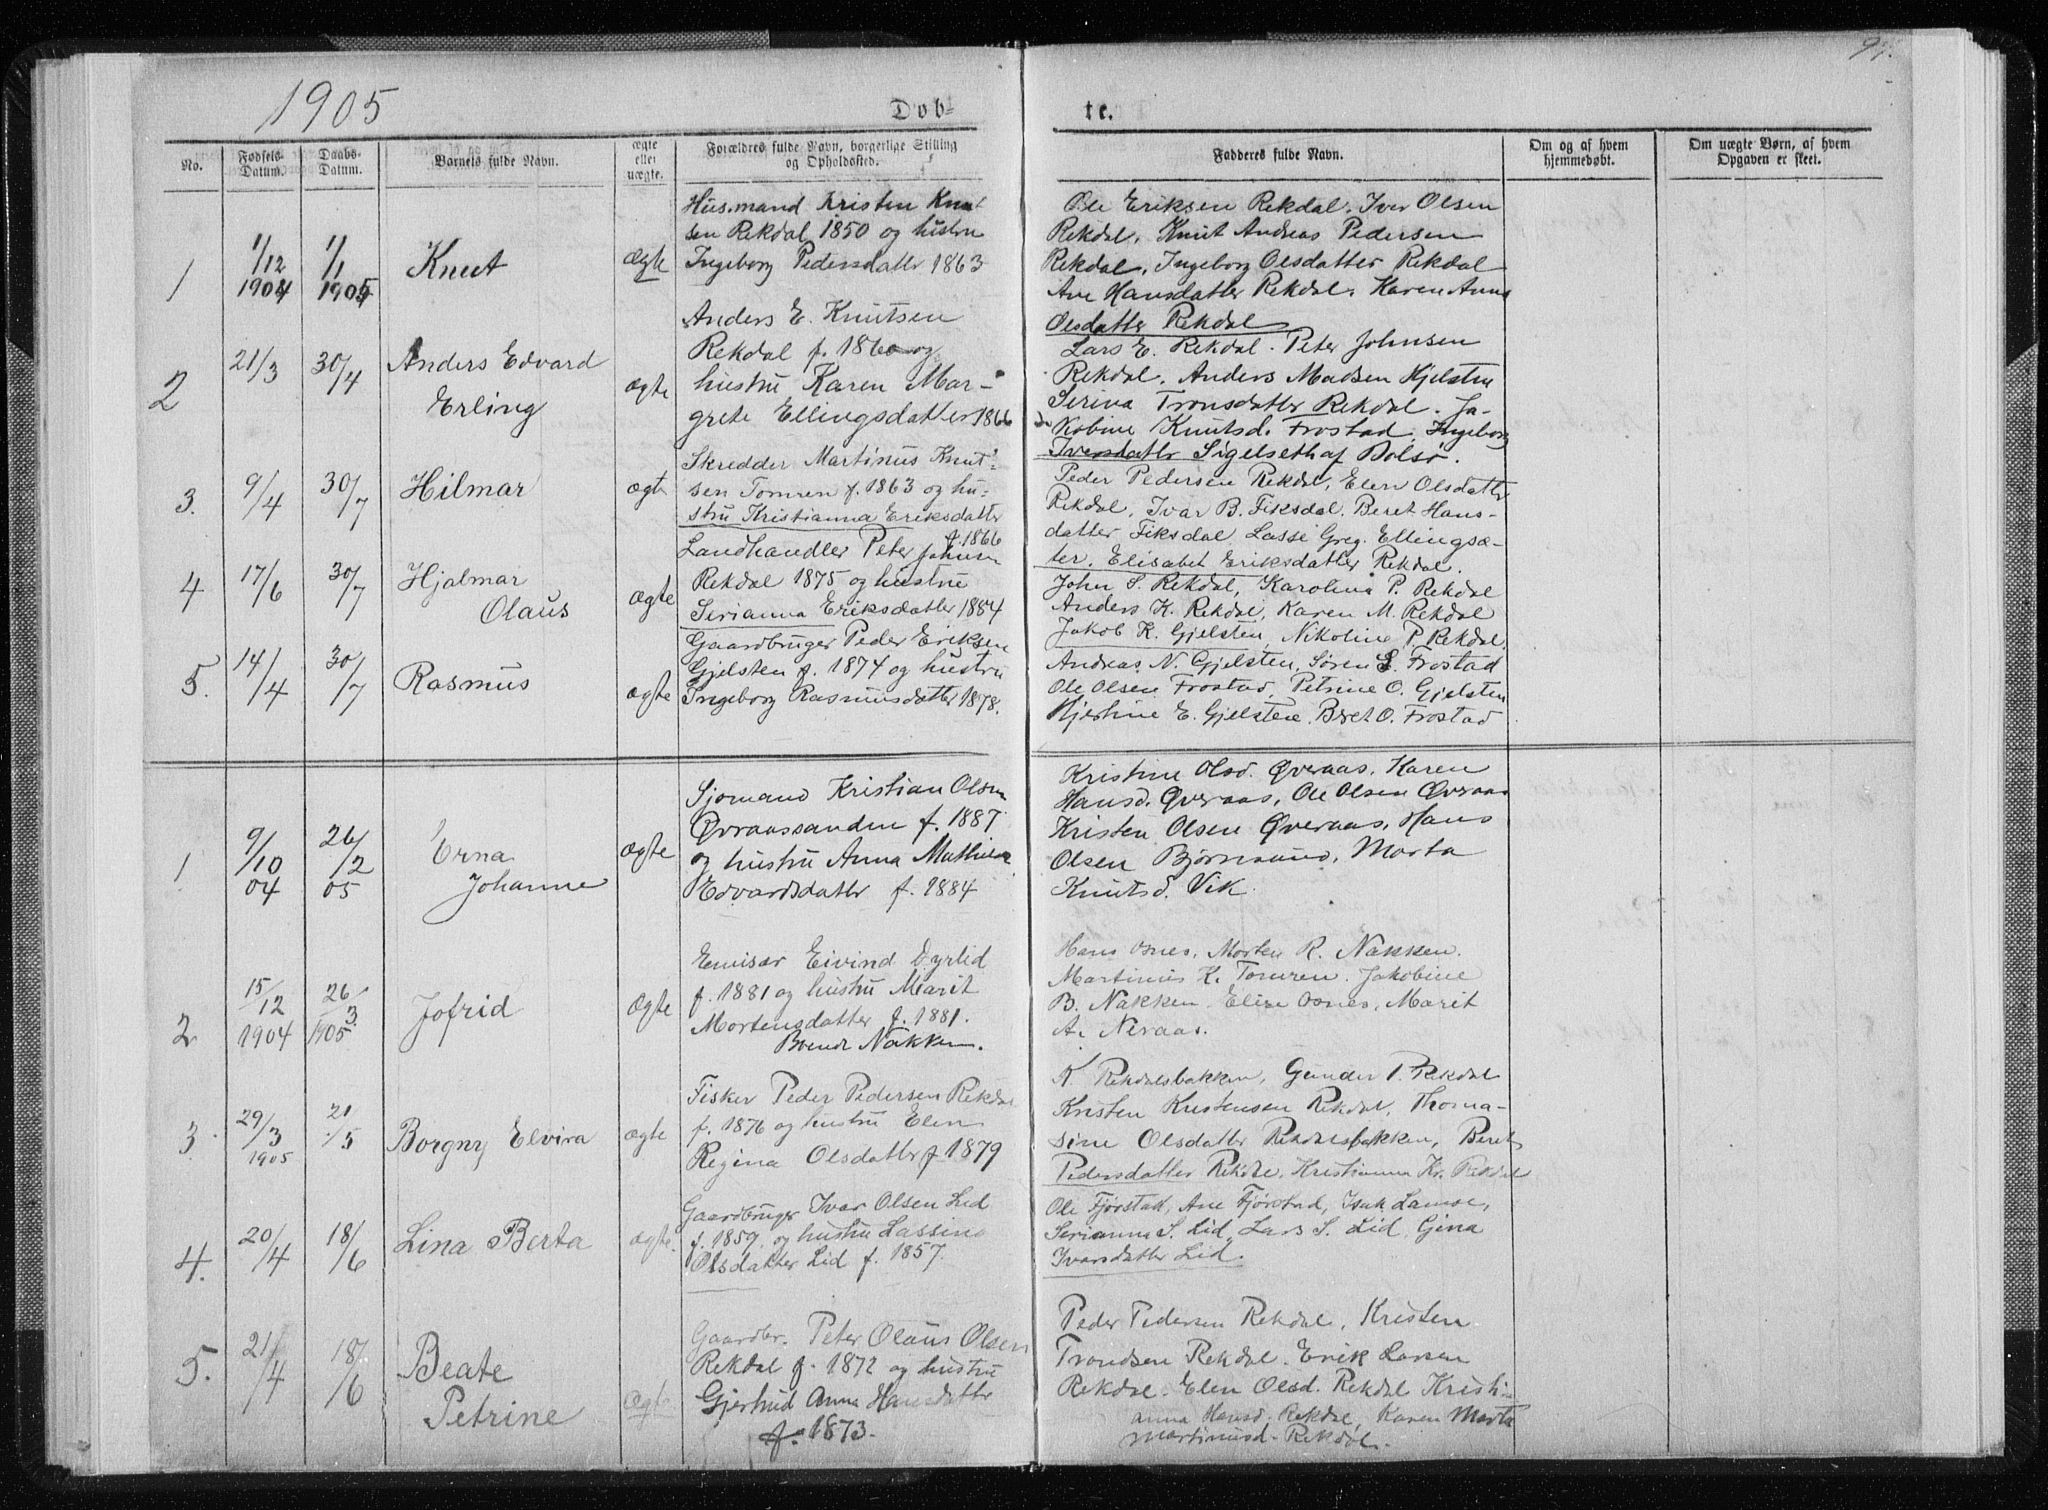 1905
Døb-
te.
97.
No.
Fødsels-Datum.
Daabs-Datum.
Barnets fulde Navn.
ægte eller uægte.
Forældres fulde Navn, borgerlige Stilling og Opholdssted.
Fadderes fulde Navn.
Om og af hvem hjemmedøbt.
Om uægte Børn, af hvem Opgaven er skeet.
1
1/12 1904
1/1 1905
Knut
ægte
Husmand Kristen Knut
sen Rekdal 1850 og hustru
Ingeborg Pedersdatter 1863
Ole Eriksen Rekdal. Iver Olsen
Rekdal. Knut Andreas Pedersen
Rekdal, Ingeborg Olsdatter Rekdal
Ane Hansdatter Rekdal. Karen Anna
Olsdatter Rekdal
2
21/3
30/4
Anders Edvard
Erling
ægte
Anders E. Knutsen
Rekdal f. 1860 og
hustru Karen Mar-
grete Ellingsdatter 1866
Lars E. Rekdal. Peter Johnsen
Rekdal. Anders Madsen Hjelsten
Serina Tronsdatter Rekdal. Ja-
kobine Knutsd. Frostad. Ingeborg
Iversdatter Sigelseth af Bolsø.
3.
9/4
30/7
Hilmar
ægte
Skredder Martinus Knut-
sen Tomren f. 1863 og hu-
stru Kristianna Eriksdatter
f. 1866
Peder Pedersen Rekdal, Elen Olsdatter
Rekdal, Ivar B. Fiksdal. Beret Hans-
datter Fiksdal Lasse Greg. Ellingsæ-
ter. Elisabet Eriksdatter Rekdal.
4
17/6
30/7
Hjalmar
Olaus
ægte
Landhandler Peter Johnsen
Rekdal 1875 og hustru
Serianna Eriksdatter 1884
John S. Rekdal, Karolina P. Rekdal
Anders K. Rekdal, Karen M. Rekdal
Jakob K. Gjelsten, Nikoline P. Rekdal.
5.
14/4
30/7
Rasmus
ægte
Gaardbruger Peder Eriksen
Gjelsten f. 1874 og hustru
Ingeborg Rasmusdatter 1878.
Andreas N. Gjelsten, Søren E. Frostad
Ole Olsen Frostad, Petrine O. Gjelsten
Hjertine E. Gjelsten. Bret O. Frostad
1
9/10 04
26/2 05
Erna
Johanne
ægte
Sjømand Kristian Olsen
Øvraassanden f. 1887
og hustru Anna Mathilde
Edvardsdatter f. 1884
Kristine Olsd. Øveraas. Karen
Hansd. Øveraas, Ole Olsen Øveraas
Kristen Olsen Øveraas, Hans
Olsen Bjørnsund, Marta
Knutsd. Vik.
2
15/12 1904
26/3 1905
Jofrid
ægte
Emisær Eivind Dyrlid
f. 1881 og hustru Marit
Mortensdatter f. 1881.
Boende Nakken.
Hans Osnes, Morten R. Nakken.
Martinus K. Tomren. Jakobine
B. Nakken. Elise Osnes, Marit
A. Neraas.
3.
29/3 1905
21/5
Borgny Elvira
ægte
Fisker Peder Pedersen Rekdal
f. 1876 og hustru Elen
Regina Olsdatter f 1879
K Rekdalsbakken, Gunder P. Rekdal
Kristen Kristensen Rekdal, Thoma-
sine Olsdatter Rekdalsbakken, Beret
Pedersdatter Rekdal, Kristianna Kr. Rekdal
4.
20/4
18/6
Lina Berta
ægte.
Gaardbruger Ivar Olsen Lid
f. 1859. og hustru Lassine
Olsdatter Lid f. 1857.
Ole Fjørstad, Ane Fjørstad, Isak
Serianna S. Lid, Lars S. Lid, Gina
Ivarsdatter Lid.
5.
21/4
18/6
Beate
Petrine
ægte
Gaardbr. Peter Olaus Olsen
Rekdal f. 1872 og hustru
Gjertrud Anna Hansdatter
f. 1873.
Peder Pedersen Rekdal, Kristen
Trondsen Rekdal. Erik Larsen
Rekdal. Elen Olsd. Rekdal Kristi-
anna Hansd. Rekdal, Karen Marta
Martinusd. Rekdal.